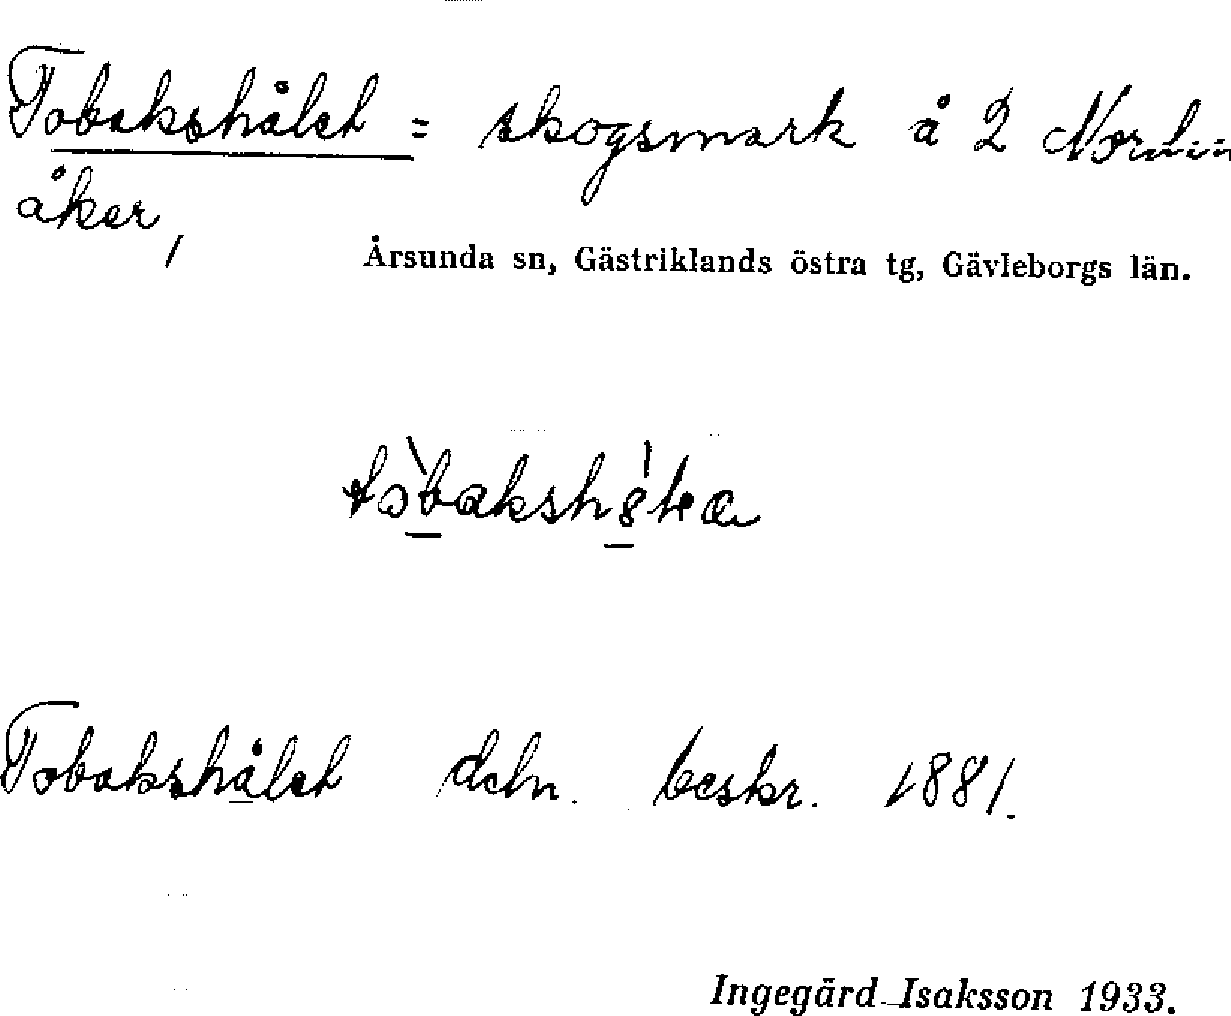 Tobakshålet = skogsmark å 2 Nordin
åker,
Årsunda sn, Gästriklands östra tg, Gävleborgs län.
Tobakshålet dcln. beskr. 1881.
Ingegärd Isaksson 1933.